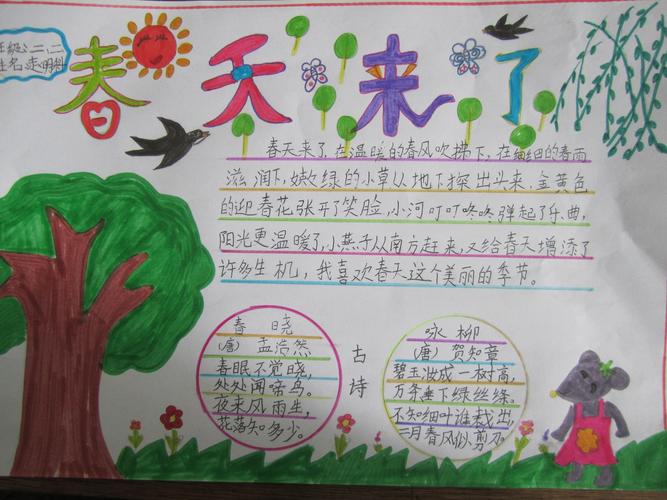 班级:二、二
姓名:
春天来了
春天来了,在温暖的春风吹拂下,在细细的春雨
滋润下,嫩绿的小草从地下探出头来,金黄色
的迎春花张开了笑脸,小河叮叮咚咚弹起了乐曲,
阳光更温暖了,小燕子从南方赶来,又给春天增添了
许多生机,我喜欢春天这个美丽的季节。
春晓
(唐)孟浩然
春眠不觉晓,
处处闻啼鸟。
夜来风雨生,
花落知多少。
古诗
咏柳
(唐)贺知章
碧玉妆成一树高,
万条垂下绿丝绦。
不知细叶谁裁出,
二月春风似剪刀。